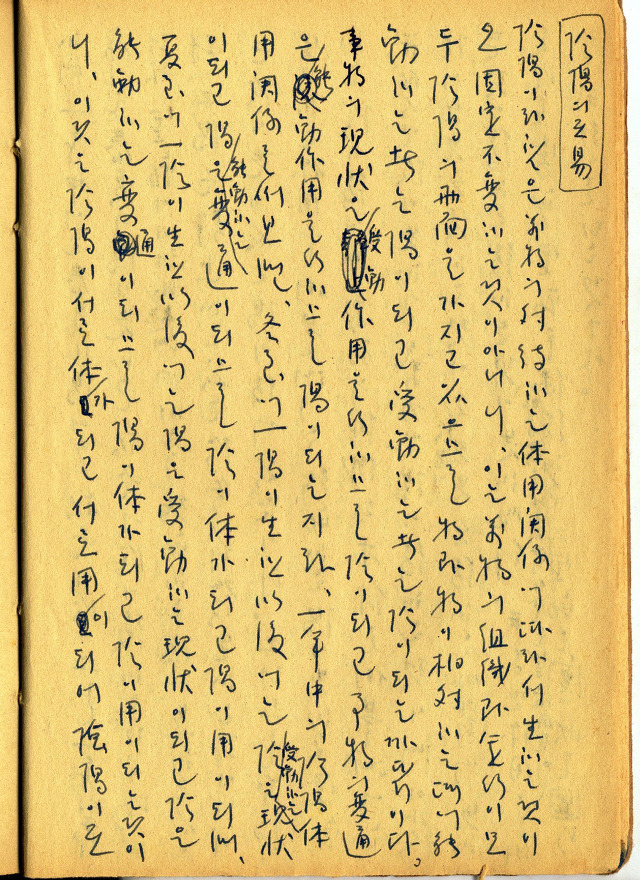 陰陽의交易
陰陽이라 함은 萬物의 対待하는 体用関係에 따라서 生하는 것이
오 固定不変하는 것이 아니니, 이는 萬物의 組織과 運行이 모
두 陰陽의 両面을 가지고 있으므로 物과 物이 相対하는 때에 能
動하는 者는 陽이 되고 受動하는 者는 陰이 되는 까닭이다。
事物의 現状은 受動作用을 行하므로 陰이 되고 事物의 変通
은 能動作用을 行하므로 陽이 되는지라、一年中의 陰陽体
用関係를 써 보면、冬至에 一陽이 生한 以後에는 陰은 受動하는 現状
이 되고 陽은 能動하는 変通이 되므로 陰이 体가 되고 陽이 用이 되며、
夏至에 一陰이 生한 以後에는 陽은 受動하는 現状이 되고 陰은
能動하는 変通이 되므로 陽이 体가 되고 陰이 用이 되는것이
니、이것은 陰陽이 서로 体가 되고 서로 用이 되어 陰陽이